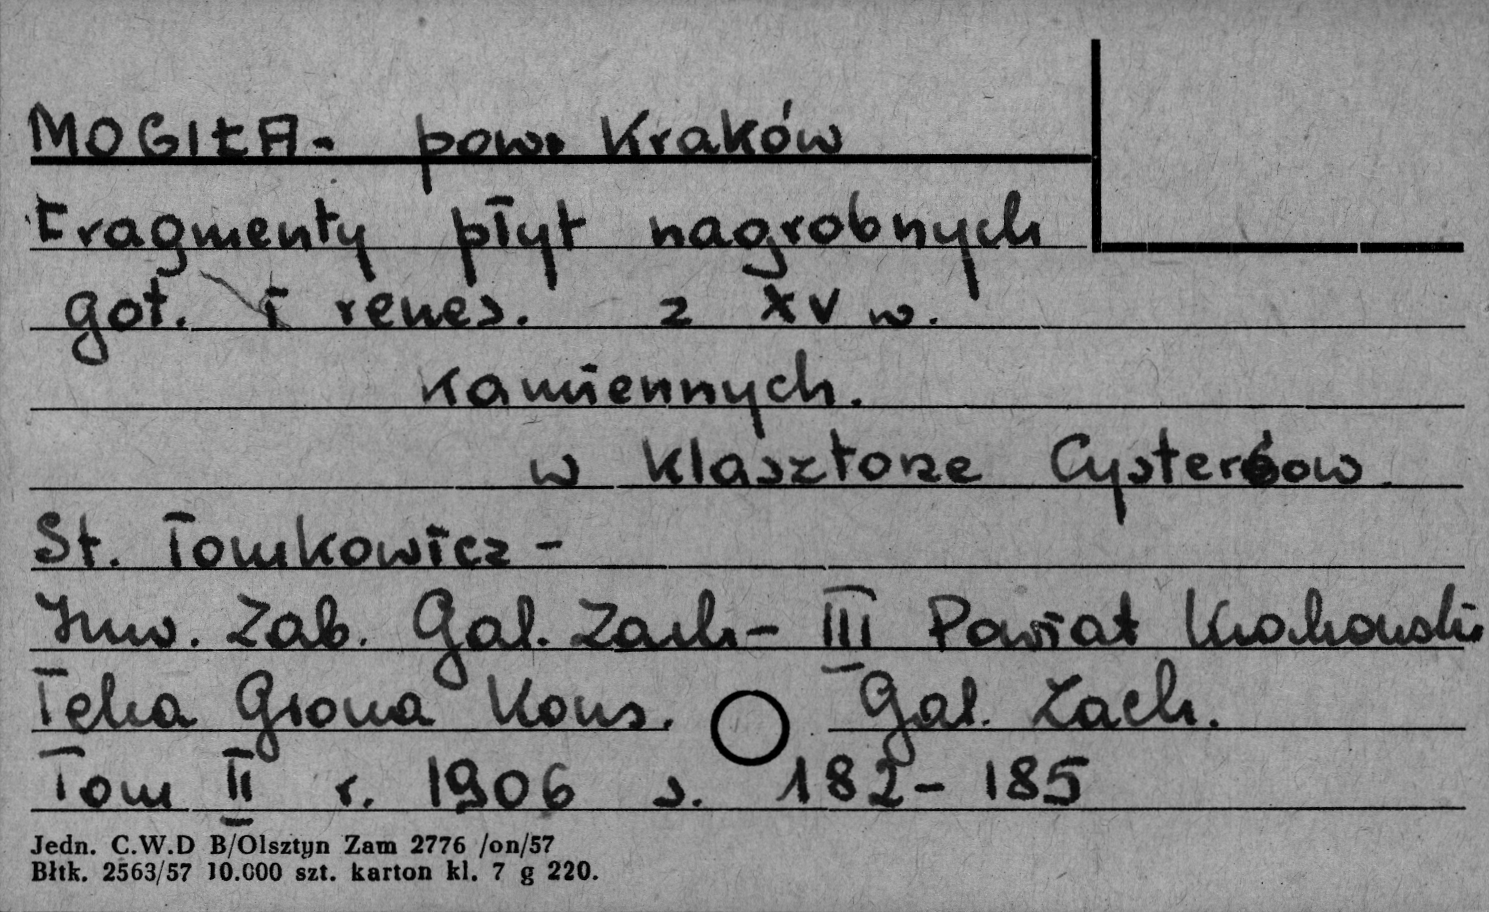 MOGIŁA - pow. Kraków
Fragmenty płyt nagrobnych
got. i renes. z XV w.
kamiennych.
w klasztorze Cystersow.
St. Tomkowicz -
Inw. Zab. Gal. Zach - III Powiat Krakowski
Teka Grona Kons. Gal. Zach.
Tom II r. 1906 s. 182 - 185
Jedn. C.W.D B/Olsztyn Zam 2776 /on/57
Błtk. 2563/57 10.000 szt. karton kl. 7 g 220.